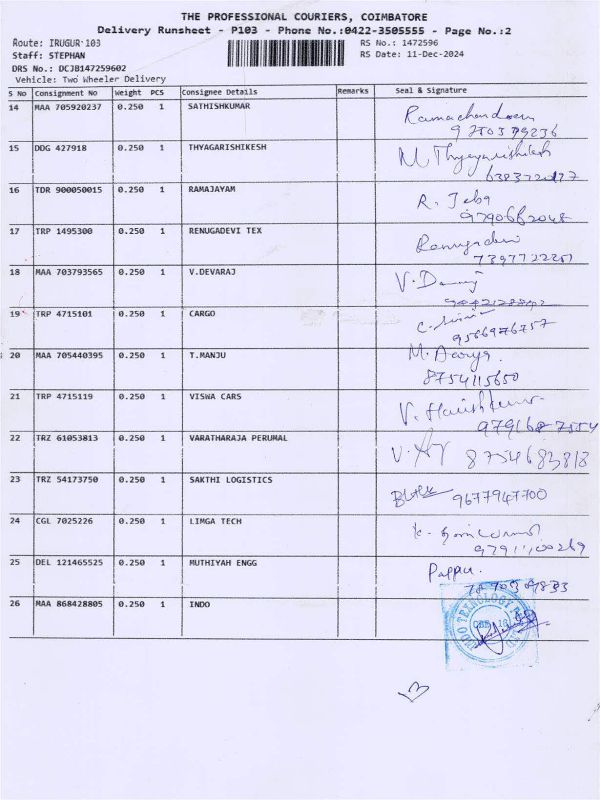 THE PROFESSIONAL COURIERS, COIMBATORE
Delivery Runsheet - P103 - Phone No.:0422-3505555 - Page No.:2
Route: IRUGUR 103 RS No.: 1472596
Staff: STEPHAN RS Date: 11-Dec-2024
DRS No.: DCJB147259602
Vehicle: Two Wheeler Delivery
S No Consignment No Weight PCS Consignee Details Remarks Seal & Signature
14 MAA 705920237 0.250 1 SATHISHKUMAR Ramachandran
15 DDG 427918 0.250 1 THYAGARISHIKESH M. Thyagarishikesh
16 TDR 900050015 0.250 1 RAMAJAYAM R. Jeba
9790662048
17 TRP 1495300 0.250 1 RENUGADEVI TEX Renugadevi
18 MAA 703793565 0.250 1 V.DEVARAJ
19 TRP 4715101 0.250 1 CARGO
9566976757
20 MAA 705440395 0.250 1 T.MANJU
8754115650
21 TRP 4715119 0.250 1 VISWA CARS V. Harishkumar
9791687554
22 TRZ 61053813 0.250 1 VARATHARAJA PERUMAL
8754683818
23 TRZ 54173750 0.250 1 SAKTHI LOGISTICS 9677947700
24 CGL 7025226 0.250 1 LIMGA TECH
25 DEL 121465525 0.250 1 MUTHIYAH ENGG Pappu.
26 MAA 868428805 0.250 1 INDO